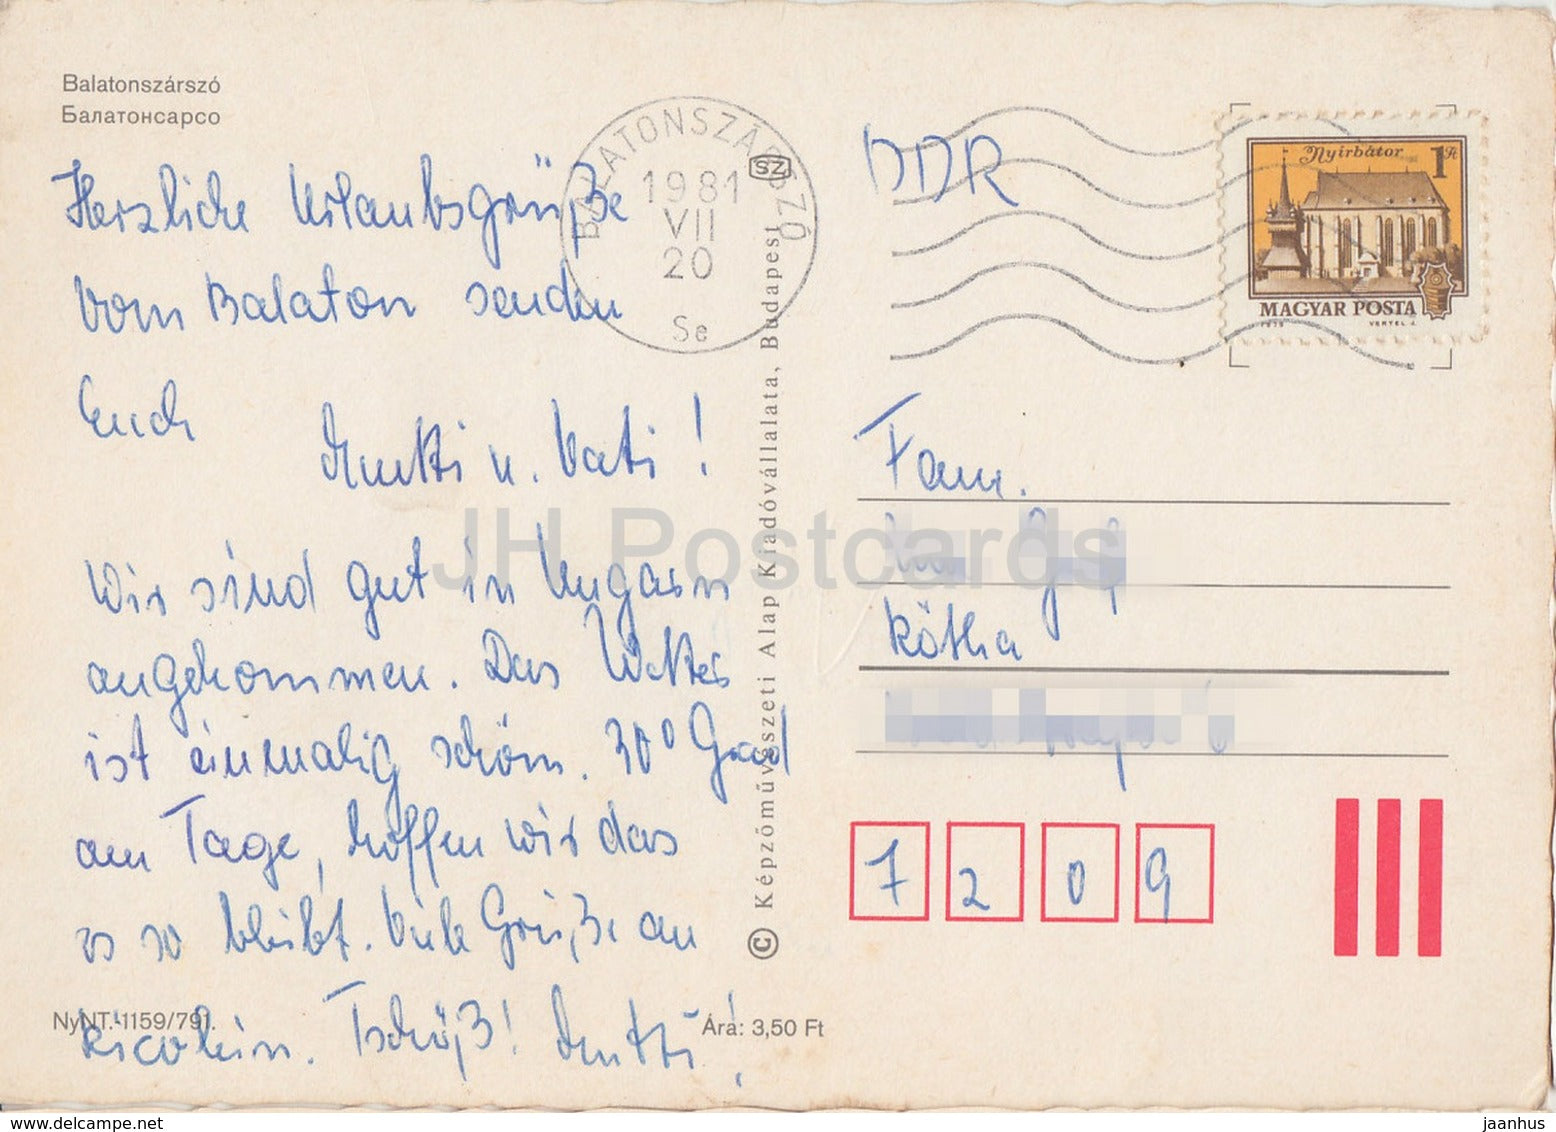 Balatonszárszó
Балатонсарсо
Herzliche Urlaubsgrüße
vom Balaton senden
Euch
Mutti u. Vati!
Wir sind gut in Ungarn
angekommen. Das Wetter
ist einmalig schön. 30° Grad
am Tage, hoffen wir das
es so bleibt. Viele Grüße an
Tschüß! Mutti!
NyNT. 1159/791.
Ára: 3,50 Ft
BALATONSZÁRSZÓ
SZ
1981
VII
20
Se
© Képzőművészeti Alap Kiadóvállalata, Budapest
DDR
Nyírbátor 1 Ft
MAGYAR POSTA
1979 VERTEL J.
Fam.
Kötha
7209
JH Postcards
www.delcampe.net
jaanhus